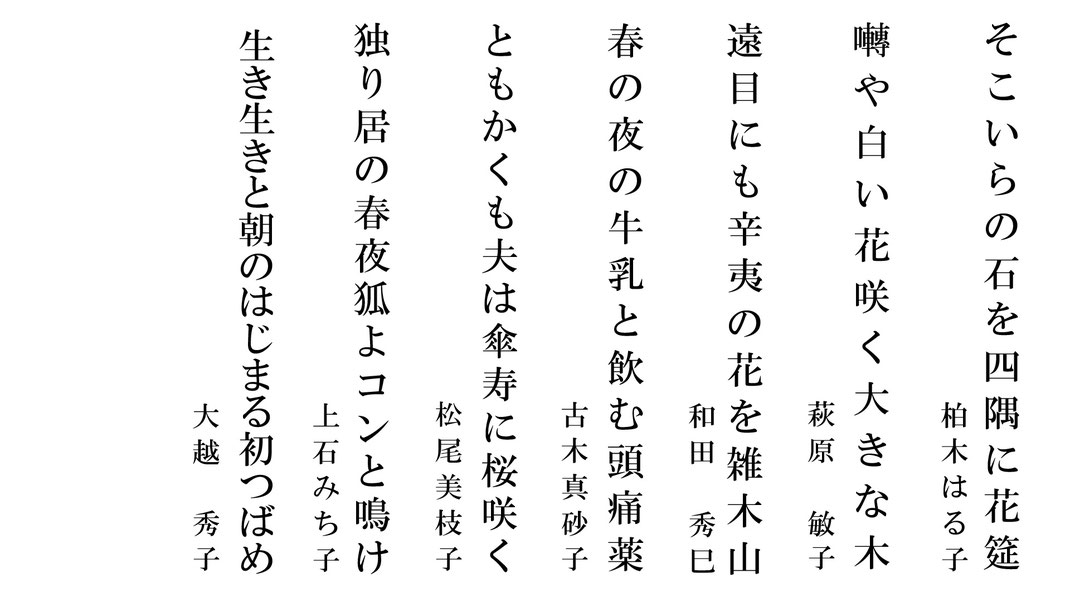 そこいらの石を四隅に花筵
柏木はる子
囀や白い花咲く大きな木
萩原　敏子
遠目にも辛夷の花を雑木山
和田　秀巳
春の夜の牛乳と飲む頭痛薬
古木真砂子
ともかくも夫は傘寿に桜咲く
松尾美枝子
独り居の春夜狐よコンと鳴け
上石みち子
生き生きと朝のはじまる初つばめ
大越　秀子